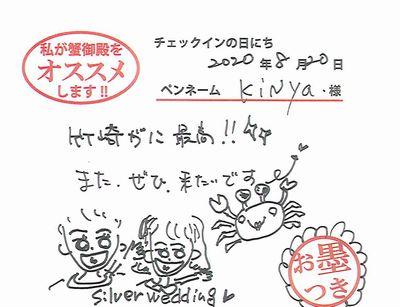 私が蟹御殿を
オススメ
します!!
チェックインの日にち
2020年8月20日
ペンネーム KiNYa・様
竹崎がに 最高!!
また、ぜひ、来たいです
silver wedding
お墨
つき